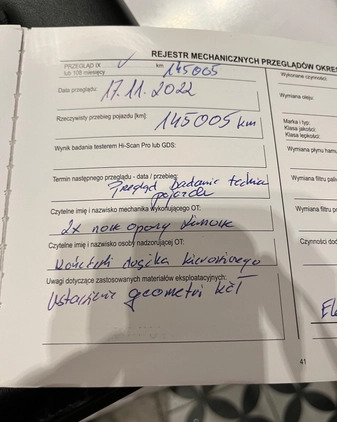 REJESTR MECHANICZNYCH PRZEGLĄDÓW OKRE
PRZEGLĄD IX
lub 108 miesięcy
km 145005
Data przeglądu: 17.11.2022
Rzeczywisty przebieg pojazdu [km]: 145005 km
Wynik badania testerem Hi-Scan Pro lub GDS:
Termin następnego przeglądu - data / przebieg:
Przegląd badanie techni
pojazdu
Czytelne imię i nazwisko mechanika wykonującego OT:
2x now opony zimowe
Czytelne imię i nazwisko osoby nadzorującej OT:
Końcówki drążka kierowniczego
Uwagi dotyczące zastosowanych materiałów eksploatacyjnych:
Ustawienie geometri kół
Wykonane czynności:
Wymiana oleju:
Marka i typ:
Klasa jakości:
Klasa lepkości:
Wymiana płynu hamu
Wymiana filtru pali
Wymiana filtru p
Czynności dod
41